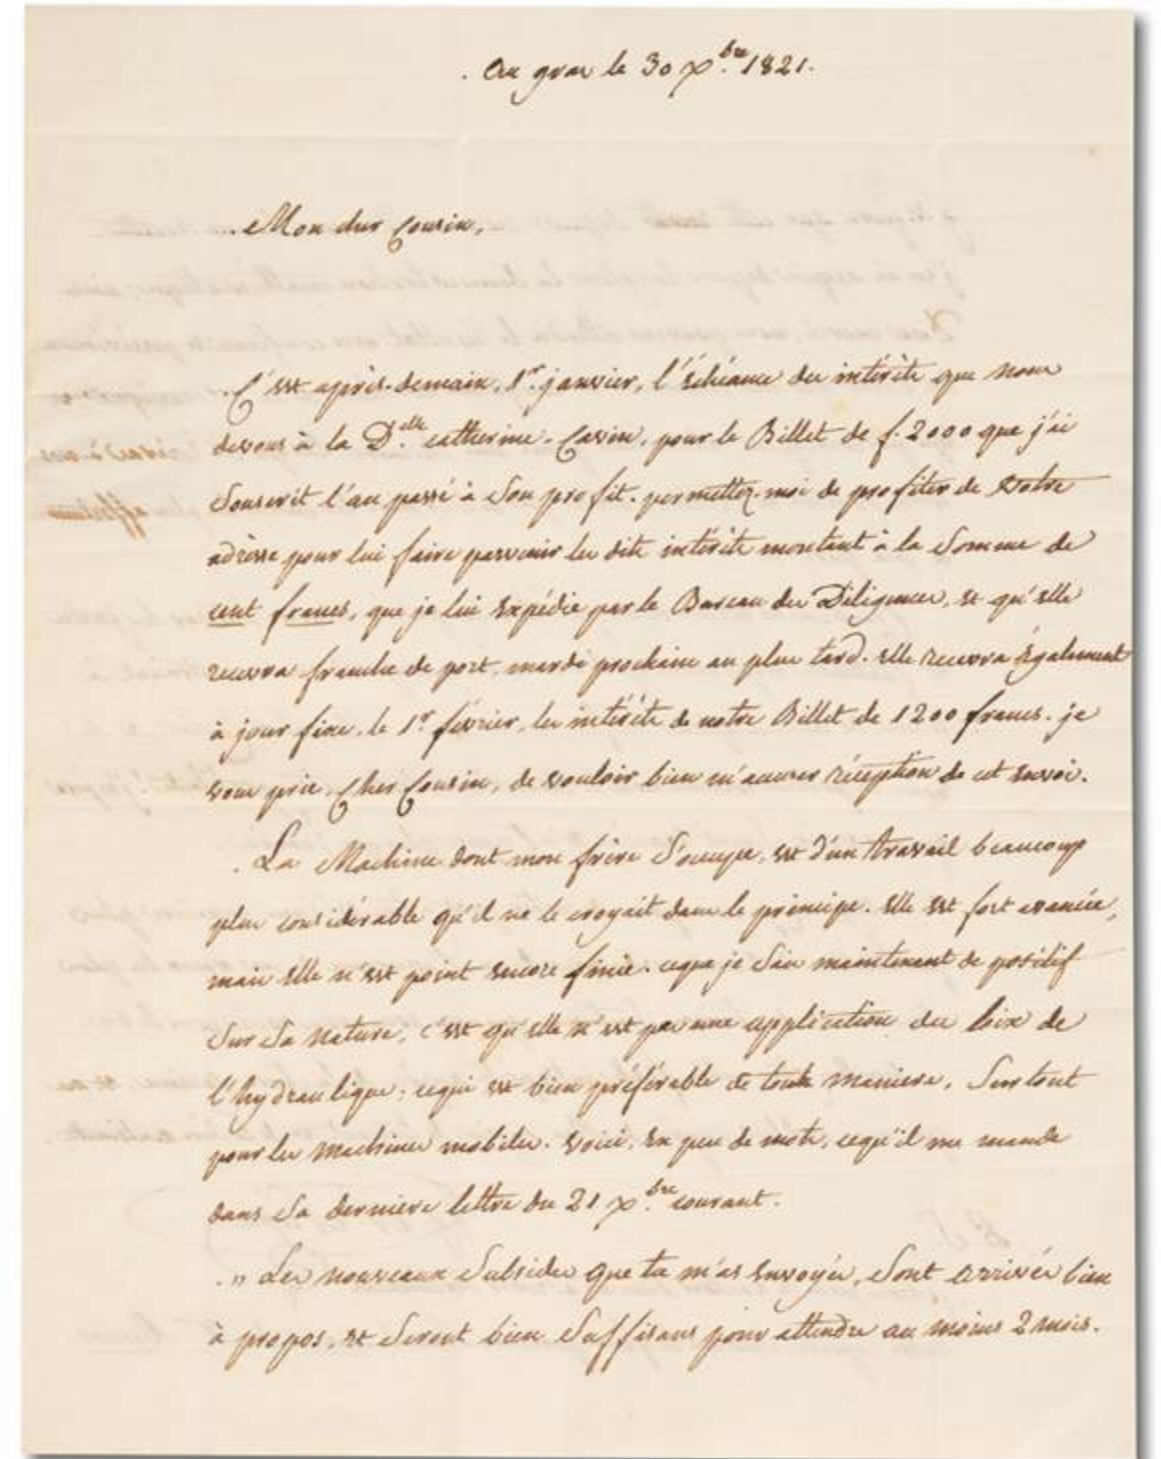 Au gras le 30 Xbre 1821.
Mon cher Cousin,
C'est après-demain, 1er janvier, l'échéance des intérêts que nous
devons à la Delle catherine-Cavin, pour le Billet de f. 2000 que j'ai
Souscrit l'an passé à Son profit. permettez-moi de profiter de votre
adresse pour lui faire parvenir les dits intérêts montant à la Somme de
cent francs, que je lui Expédie par le Bureau des Diligences, et qu'elle
recevra franche de port, mardi prochain au plus tard. elle recevra également
à jour fixe, le 1er février, les intérêts de notre Billet de 1200 francs. je
vous prie, Cher Cousin, de vouloir bien m'accuser réception de cet Envoi.
La Machine dont mon frère S'occupe, est d'un travail beaucoup
plus considérable qu'il ne le croyait dans le principe. Elle est fort avancée,
mais Elle n'est point Encore finie. ceque je Sais maintenant de positif
Sur Sa nature, c'est qu'elle n'est pas une application des loix de
l'hydraulique; cequi est bien préférable de toute maniere, Surtout
pour les machines mobiles. voici, En peu de mots, cequ'il me mande
dans Sa derniere lettre du 21 Xbre courant.
" Les nouveaux Subsides que tu m'as Envoyés, Sont arrivés bien
à propos, et Seront bien Suffisans pour attendre au moins 2 mois.